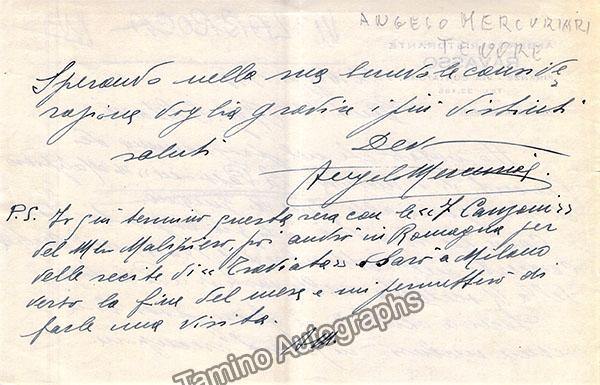 ANGELO MERCURIARI
TENORE
Sperando nella sua benevole conside
razione voglia gradire i più distinti
saluti
Dev
Angelo Mercuriali
P.S. Io qui termino questa sera con le "7 Canzoni"
del M° Malipiero, poi andrò in Romagna per
delle recite di "Traviata" sarò a Milano
verso la fine del mese e mi permetterò di
farle una visita.
Tamino Autographs